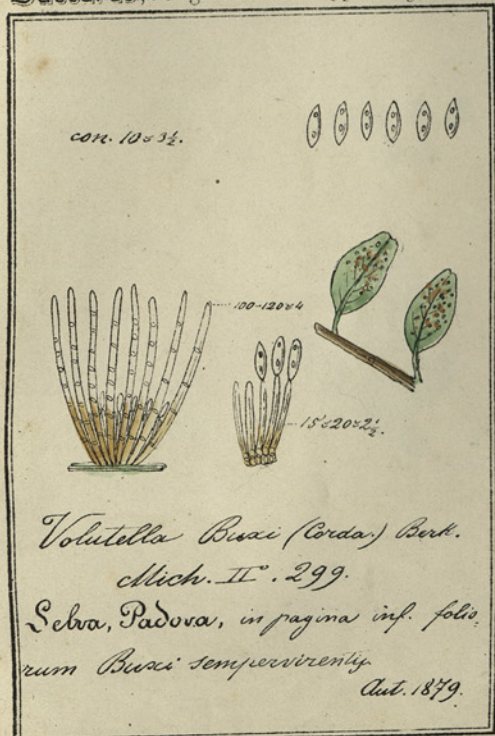 con. 10≈3½.
100-120≈4
15≈20≈2½.
Volutella Buxi (Corda.) Berk.
Mich. II°. 299.
Selva, Padova, in pagina inf. folio-
rum Buxi sempervirentis
Aut. 1879.